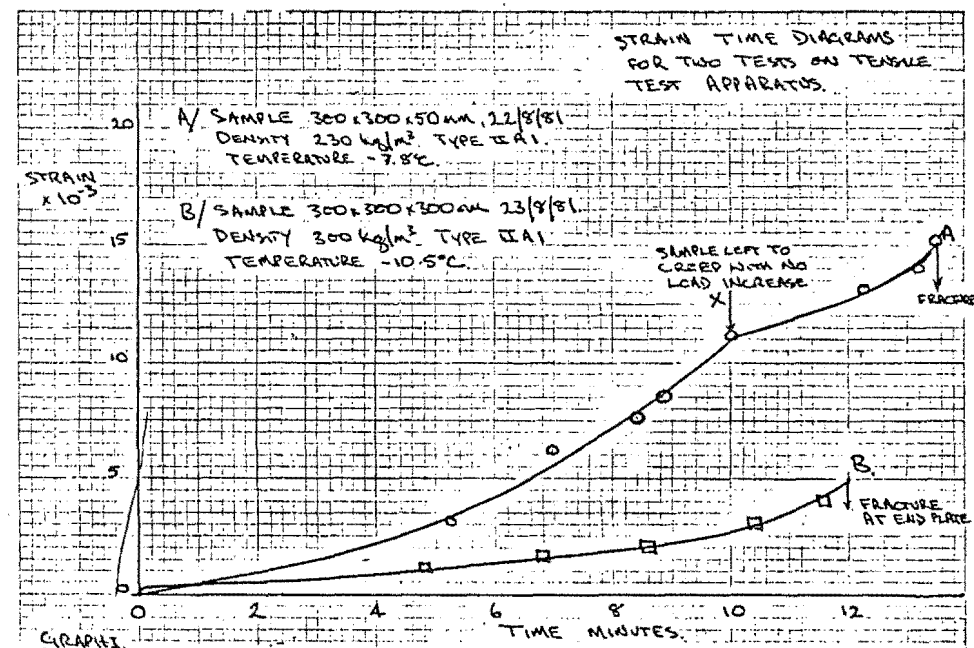 STRAIN TIME DIAGRAMS
FOR TWO TESTS ON TENSILE
TEST APPARATUS.
A/ SAMPLE 300x300x50mm, 22/8/81
DENSITY 230 kg/m³ TYPE II A1.
TEMPERATURE -7.8°C.
20
STRAIN
x 10⁻³
B/ SAMPLE 300x300x300mm 23/8/81.
DENSITY 300 kg/m³ TYPE II A1
TEMPERATURE -10.5°C.
15
SAMPLE LEFT TO
CREEP WITH NO
LOAD INCREASE
X
A
FRACTURE
10
5
B.
FRACTURE
AT END PLATE
0 2 4 6 8 10 12
TIME MINUTES.
GRAPH I.